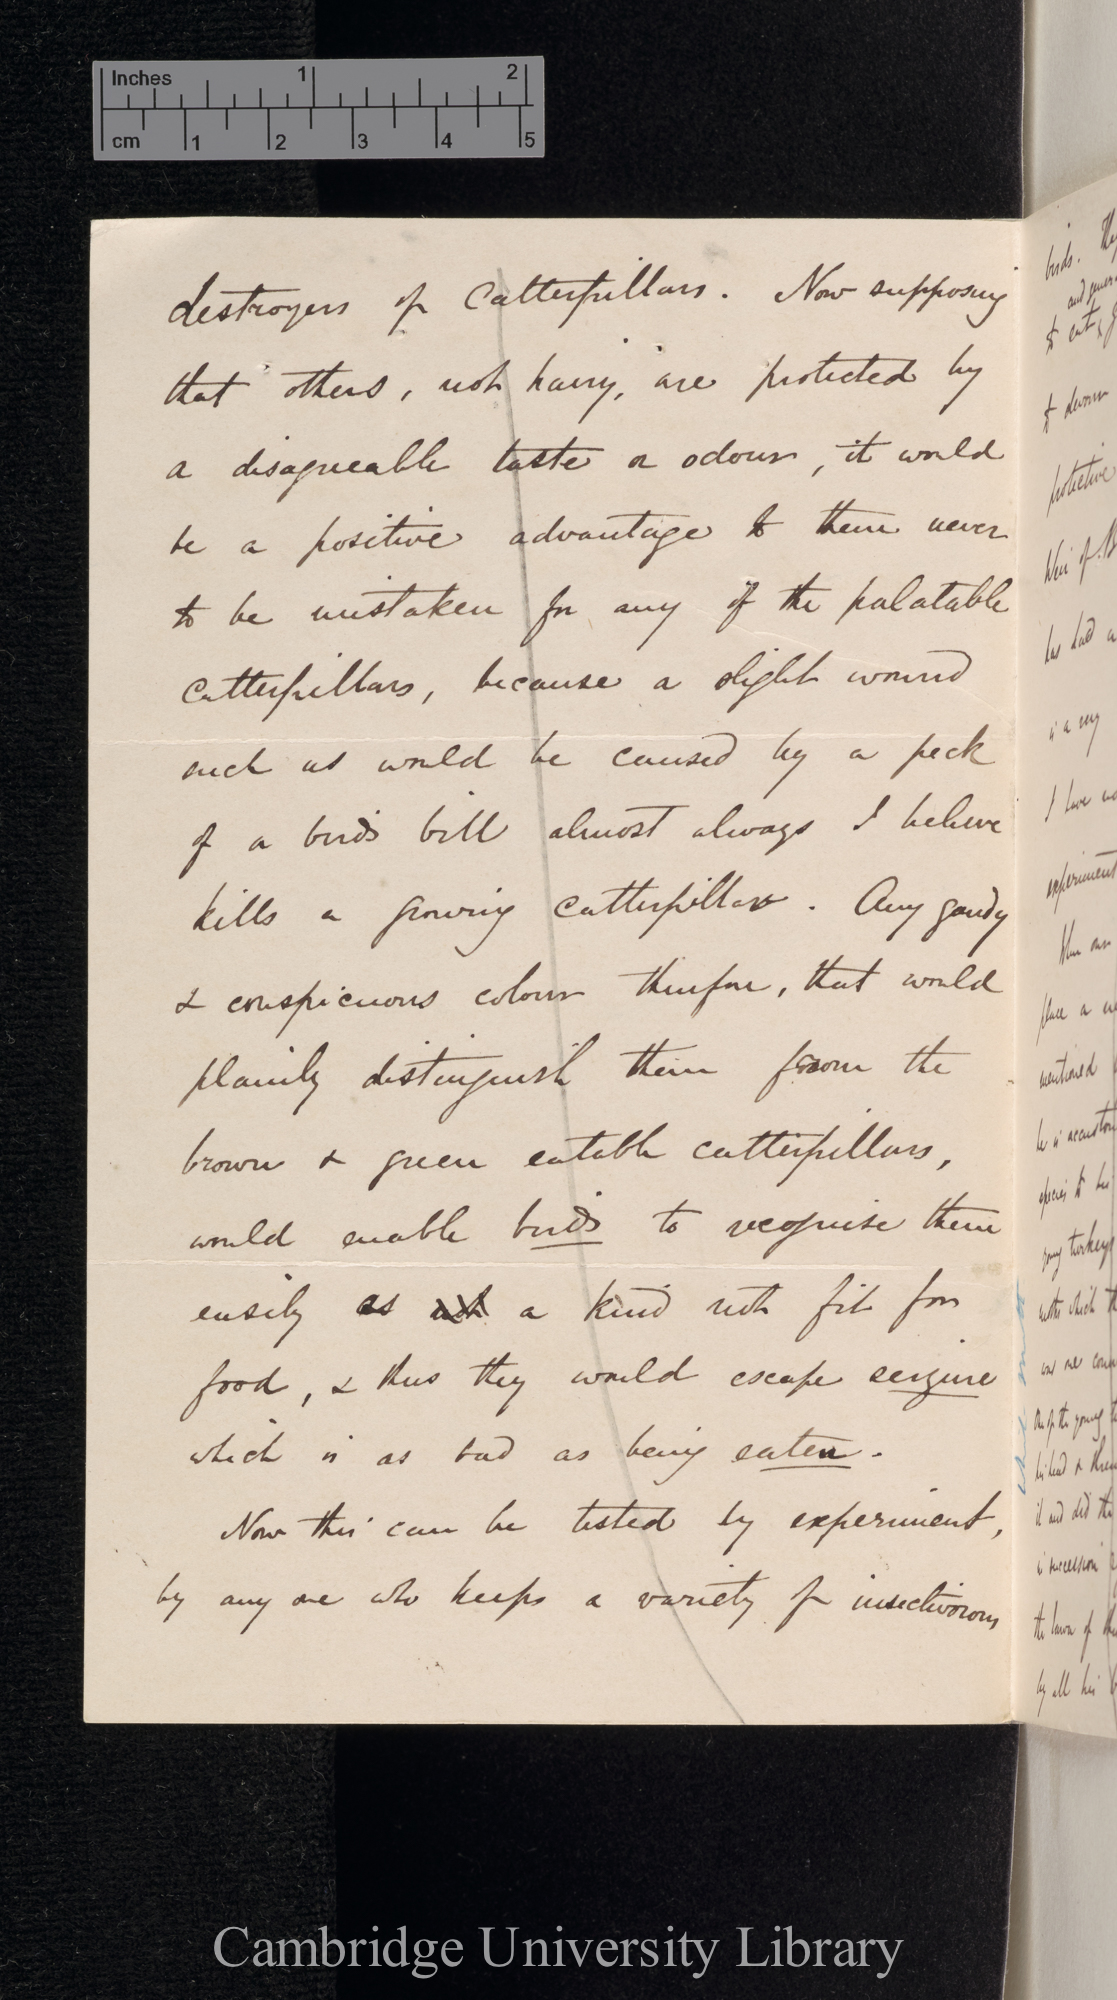 Inches 1 2
cm 1 2 3 4 5
destroyers of Catterpillars. Now supposing
that others, not hairy, are protected by
a disagreeable taste or odour, it would
be a positive advantage to them never
to be mistaken for any of the palatable
catterpillars, because a slight wound
such as would be caused by a peck
of a birds bill almost always I believe
kills a growing catterpillar. Any gaudy
& conspicuous colour therefore, that would
plainly distinguish them from the
brown & green eatable catterpillars,
would enable birds to recognise them
easily as not a kind not fit for
food, & thus they would escape seizure
which is as bad as being eaten.
Now this can be tested by experiment,
by any one who keeps a variety of insectivorous
birds. They
to eat &
to devour
protective
Weir of
has had
is a very
I have
experiment
place a
mentioned
he is
species to his
young turkeys
with which
was one
One of the young
his head &
it and did
in succession
the lawn of
by all his
Cambridge University Library